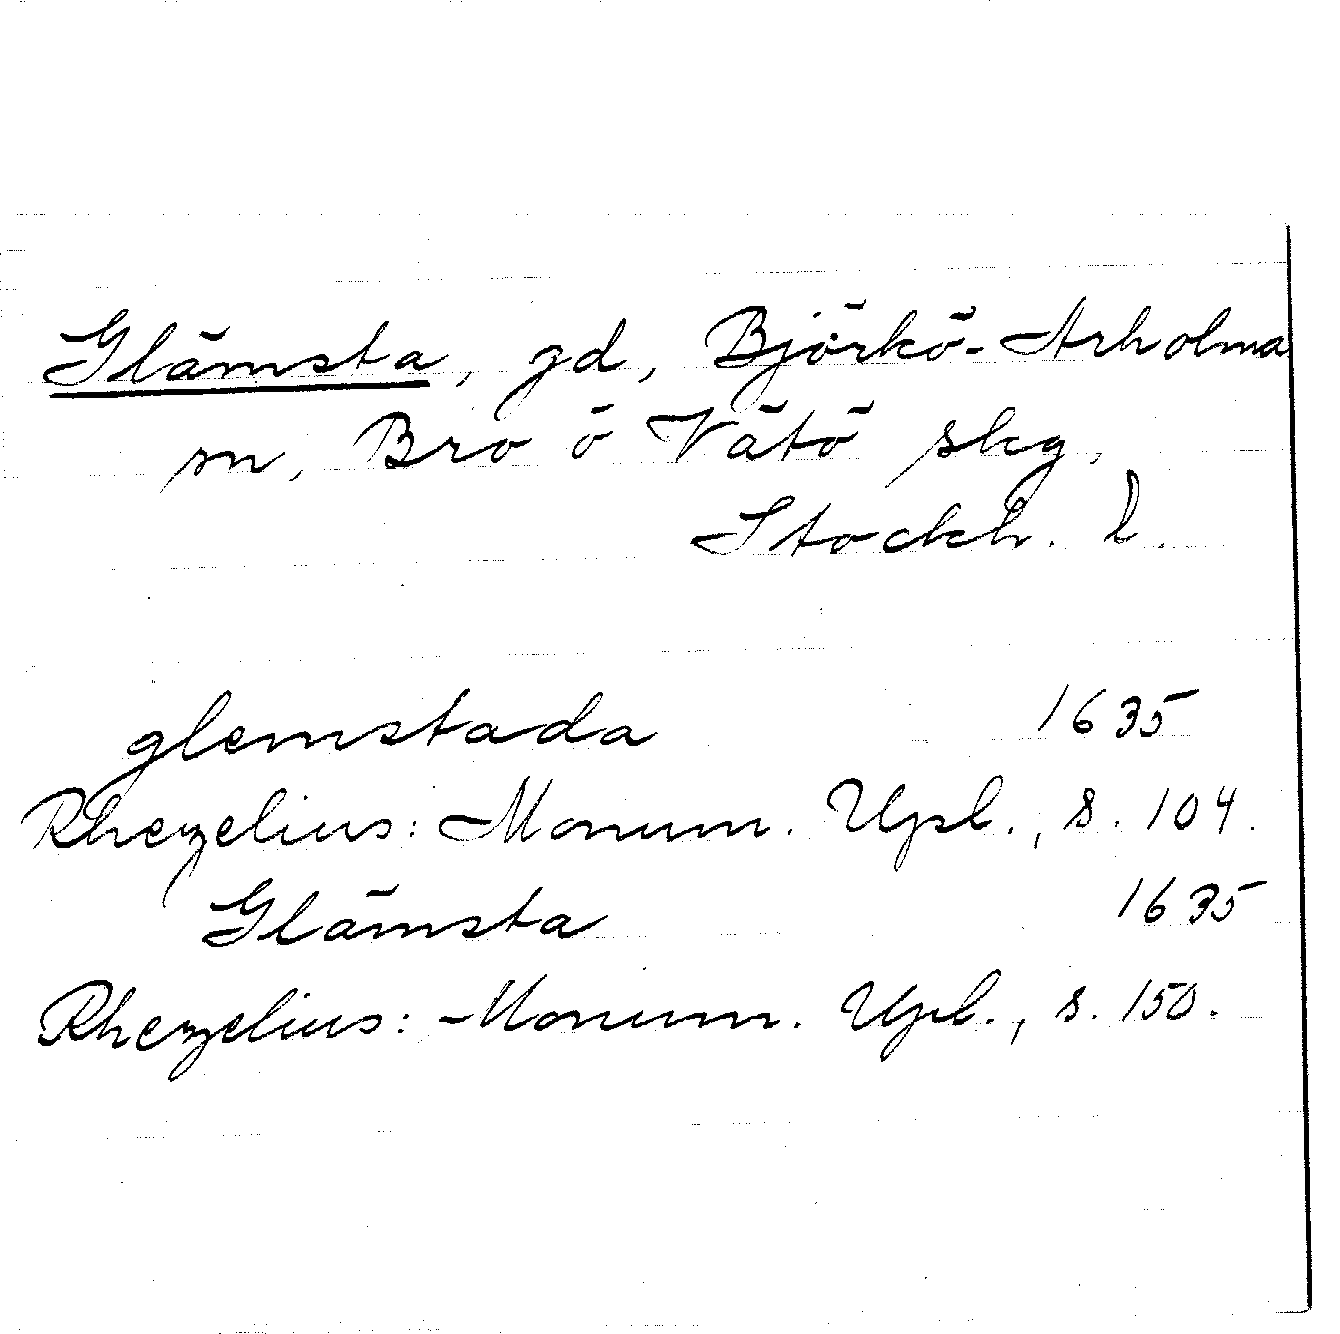 Glämsta, gd, Björkö-Arholma
sn, Bro o Vätö skg,
Stockh. l.
glemstada 1635
Rhezelius: Monum. Upl., s. 104.
Glämsta 1635
Rhezelius: Monum. Upl., s. 150.